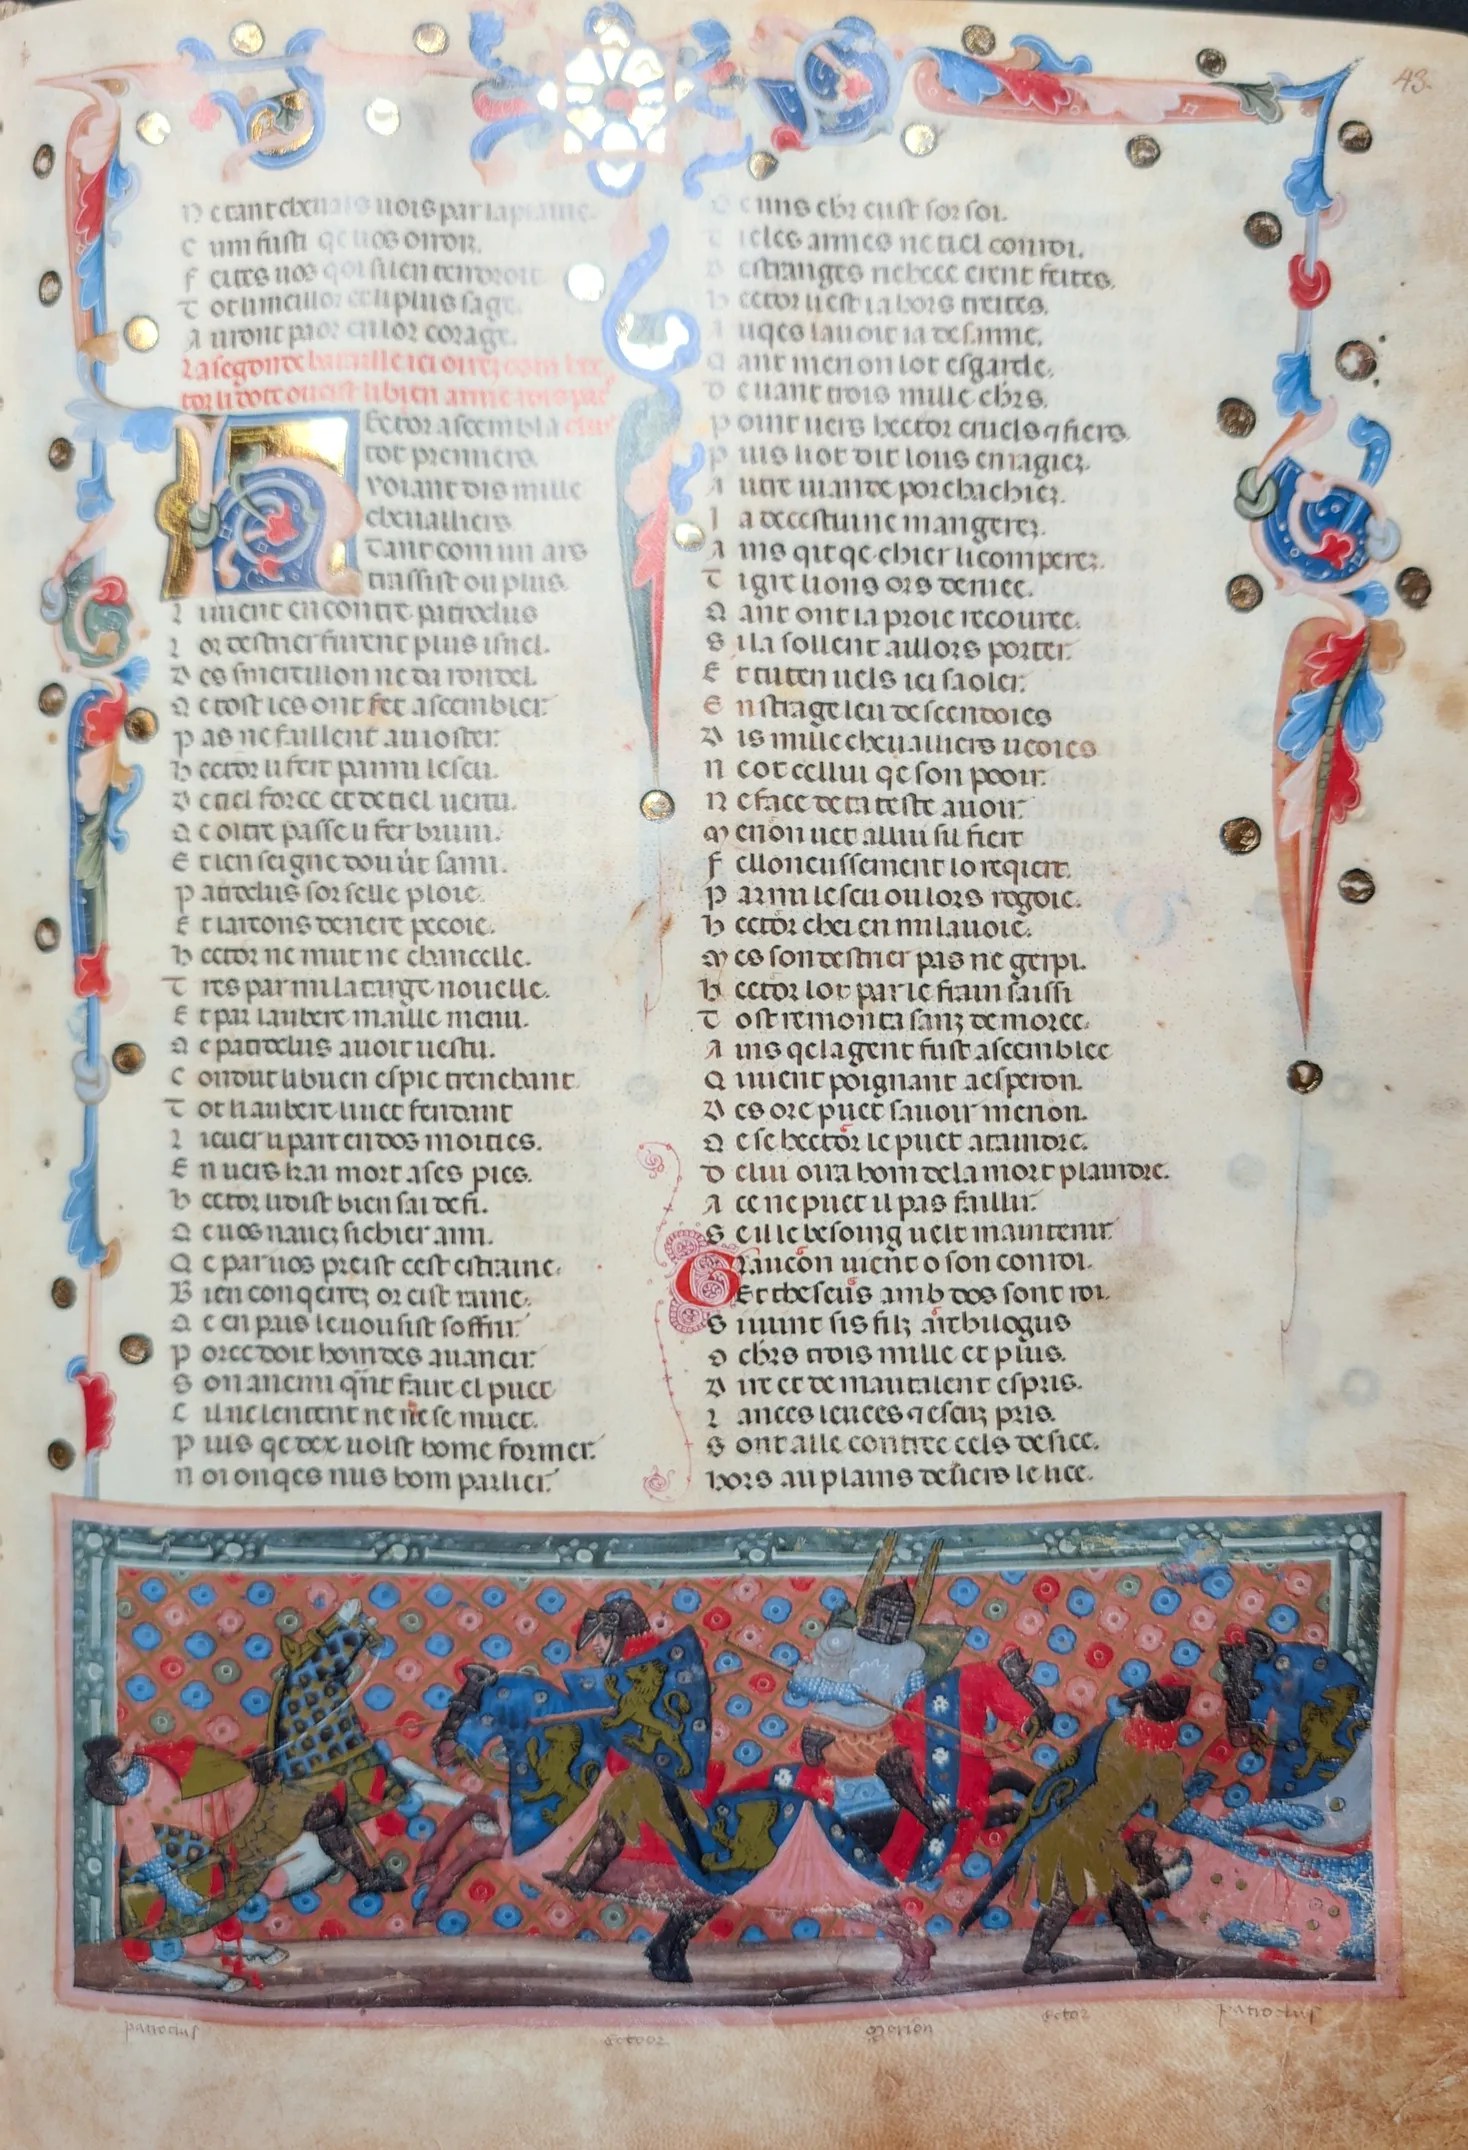 43.
N e tant cheuals uois par la plaine.
C um fusti qe uos oi noi.
F eites nos qoi sil en tendroit
T ot li meillor e li plus sage.
A uront paor en lor corage.
La segonde bataille ici oirez com hec
tor li dote ou cist li bien arme rois pat
Hector asembla clus
tot premiers.
voiant dis mille
cheualliers
Tant com un ars
traissist ou plus.
L i uient en contre patroclus
L or destrier furent plus isnel.
D es smerillon ne da rondel.
Q e tost les ont fet asembler.
P as ne faillent au ioster.
H ector li fert parmi lescu.
D e tiel force et de tiel uertu.
Q e oltre passe li fer brun.
E t len seigne dou uit sami.
P atroclus sor selle ploie.
E t lartons de next pecoie.
H ector ne mut ne chancelle.
T res parmi la targe nouelle.
E t par lauberc maille menu.
Q e patroclus auoit uestu.
C ondut li buen espie trenchant
T ot li auberc li uet fendant
L i cuer li part en dos moities.
E n uers chai mort a ses pies.
H ector li dist bien sai de fi.
Q e uos nauez si chier ami.
Q e par uos preist cest estraine.
B ien conqeirez or cist raine.
Q e en pais le uousist soffrir.
P or ce doit hom des auancir
S on anemi qnt faut el puet
C il ne lentent ne ne se muet.
P uis qe dex uolst home former.
N oi onqes nus hom parlier.
C uns chr eust sor soi.
T ieles armes ne tiel conroi.
D estranges richece erent feites.
H ector uest ia hors treites.
A uqes lauoit ia desarme.
Q ant menon lot esgarde.
D euant trois mille chrs.
P oint uers hector cruels 7 fiers.
P uis li ot dit lous enragiez.
A utre uiande porchachiez.
I a de cestui ne mangerez.
A ins qit qe chier li comperez.
T igre lions ors deniee.
Q ant ont la proie recouree.
S i la sollent aillors porter.
E t tu ten uels ici saoler.
E n strage leu descendoies
D is mille cheualliers ueoies
N e ot cellui qe son pooir.
N e face de ta teste auoir.
M enon uet allui sil fiert
F elloneussement lo reqiert.
P armi lescu ou lors regoie.
H ector chei en mi la uoie.
M es son destrier pas ne gerpi.
H ector lot par le frain saissi
T ost remonta sanz demoree.
A ins qe la gent fust asemblee
Q i uient poignant a esperon.
D es ore puet sauoir menon.
Q e se hector le puet ataindre.
D e lui oira hom de la mort plaindre.
A ce ne puet il pas faillir.
S e il le besoing uelt maintenir.
Glaucon uient o son conroi.
Et theseus amb dos sont roi.
S iuint sis filz archilogus
O chrs trois mille et plus.
D ire et de mautalent espris.
L ances leuees 7 escuz pris.
S ont alle contre cels defiee.
hors au plains deuers le lice.
patroclus
ector
Menon
ector
patroclus